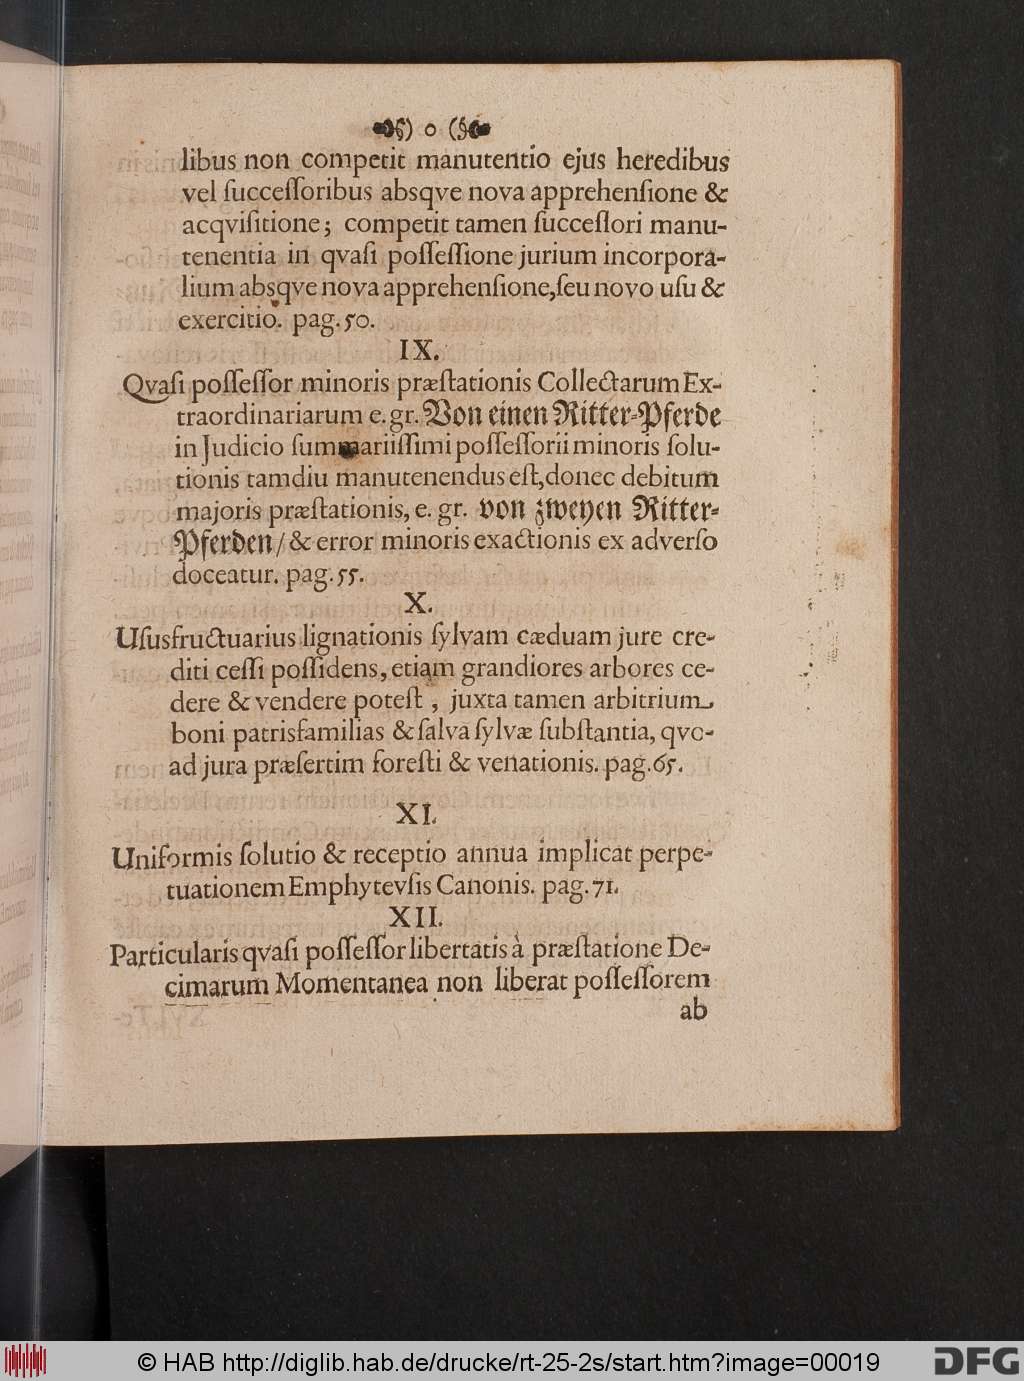 ) o (
libus non competit manutentio ejus heredibus
vel ſucceſſoribus absqve nova apprehenſione &
acqviſitione; competit tamen ſucceſſori manu-
tenentia in qvaſi poſſeſſione jurium incorpora-
lium absqve nova apprehenſione,ſeu novo uſu &
exercitio. pag. 50.
IX.
Qvaſi poſſeſſor minoris præſtationis Collectarum Ex-
traordinariarum e. gr. Von einen Ritter-Pferde
in Judicio ſummariiſſimi poſſeſſorii minoris ſolu-
tionis tamdiu manutenendus eſt,donec debitum
majoris præſtationis, e. gr. von zweyen Ritter-
Pferden/ & error minoris exactionis ex adverſo
doceatur. pag. 55.
X.
Uſusfructuarius lignationis ſylvam cæduam jure cre-
diti ceſſi poſſidens, etiam grandiores arbores ce-
dere & vendere poteſt , juxta tamen arbitrium
boni patrisfamilias & ſalva ſylvæ ſubſtantia, qvo-
ad jura præſertim foreſti & venationis. pag. 65.
XI.
Uniformis ſolutio & receptio annua implicat perpe-
tuationem Emphytevſis Canonis. pag. 71.
XII.
Particularis qvaſi poſſeſſor libertatis à præſtatione De-
cimarum Momentanea non liberat poſſeſſorem
ab
© HAB http://diglib.hab.de/drucke/rt-25-2s/start.htm?image=00019
DFG